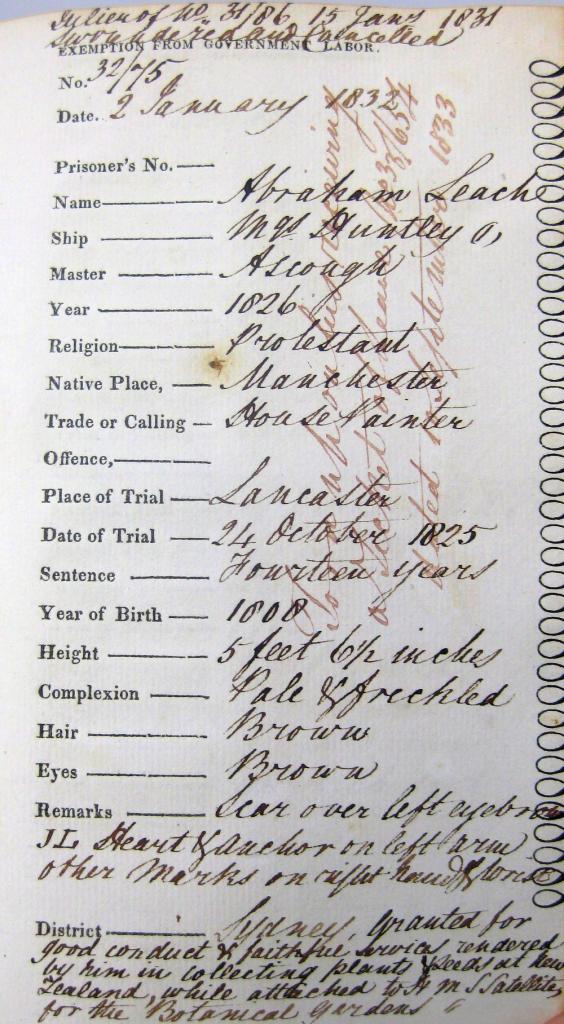 In lieu of No. 31/86 15 Jany 1831
surrendered and Cancelled
EXEMPTION FROM GOVERNMENT LABOR.
No. 32/75
Date. 2 January 1832
Prisoner's No.
Name Abraham Leach
Ship Mqs Huntley (1)
Master Ascough
Year 1826
Religion Protestant
Native Place, Manchester
Trade or Calling House Painter
Offence,
Place of Trial Lancaster
Date of Trial 24 October 1825
Sentence Fourteen years
Year of Birth 1808
Height 5 feet 6½ inches
Complexion Pale & freckled
Hair Brown
Eyes Brown
Remarks Scar over left eyebrow
JL Heart & Anchor on left arm
other Marks on right hand & wrist
District Sydney, granted for
good conduct & faithful services rendered
by him in collecting plants & seeds at New
Zealand, while attached to H M S Satellite,
for the Botanical Gardens
a Ticket of leave No 33/654
dated September 1833